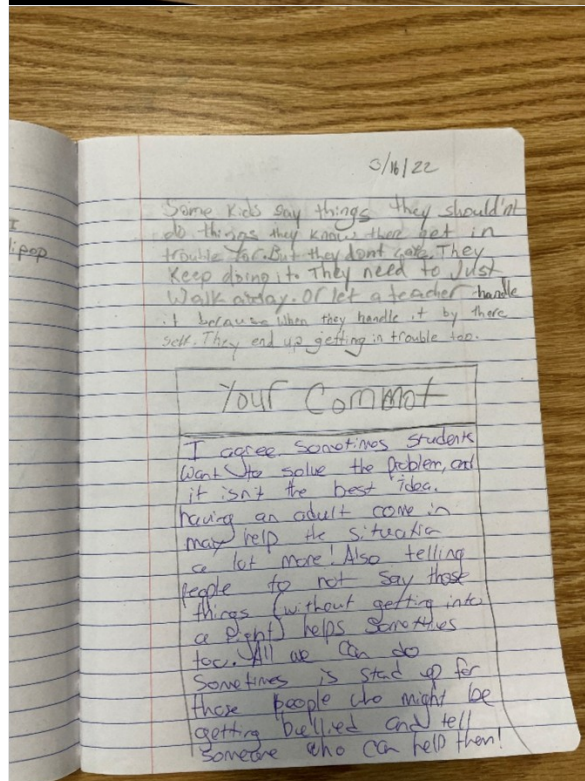 I
lipop
3/16/22
Some kids say things they should'nt
do things they know there get in
trouble for. But they dont care. They
keep doing it. They need to Just
Walk away. Or let a teacher handle
it because when they handle it by there
self. They end up getting in trouble too.
Your Commot
I agree. Sometimes students
want to solve the problem, and
it isn't the best idea.
having an adult come in
may help the situation
a lot more! Also telling
people to not say those
things (without getting into
a fight) helps sometimes
too. All we can do
sometimes is stand up for
those people who might be
getting bullied and tell
someone who can help them!